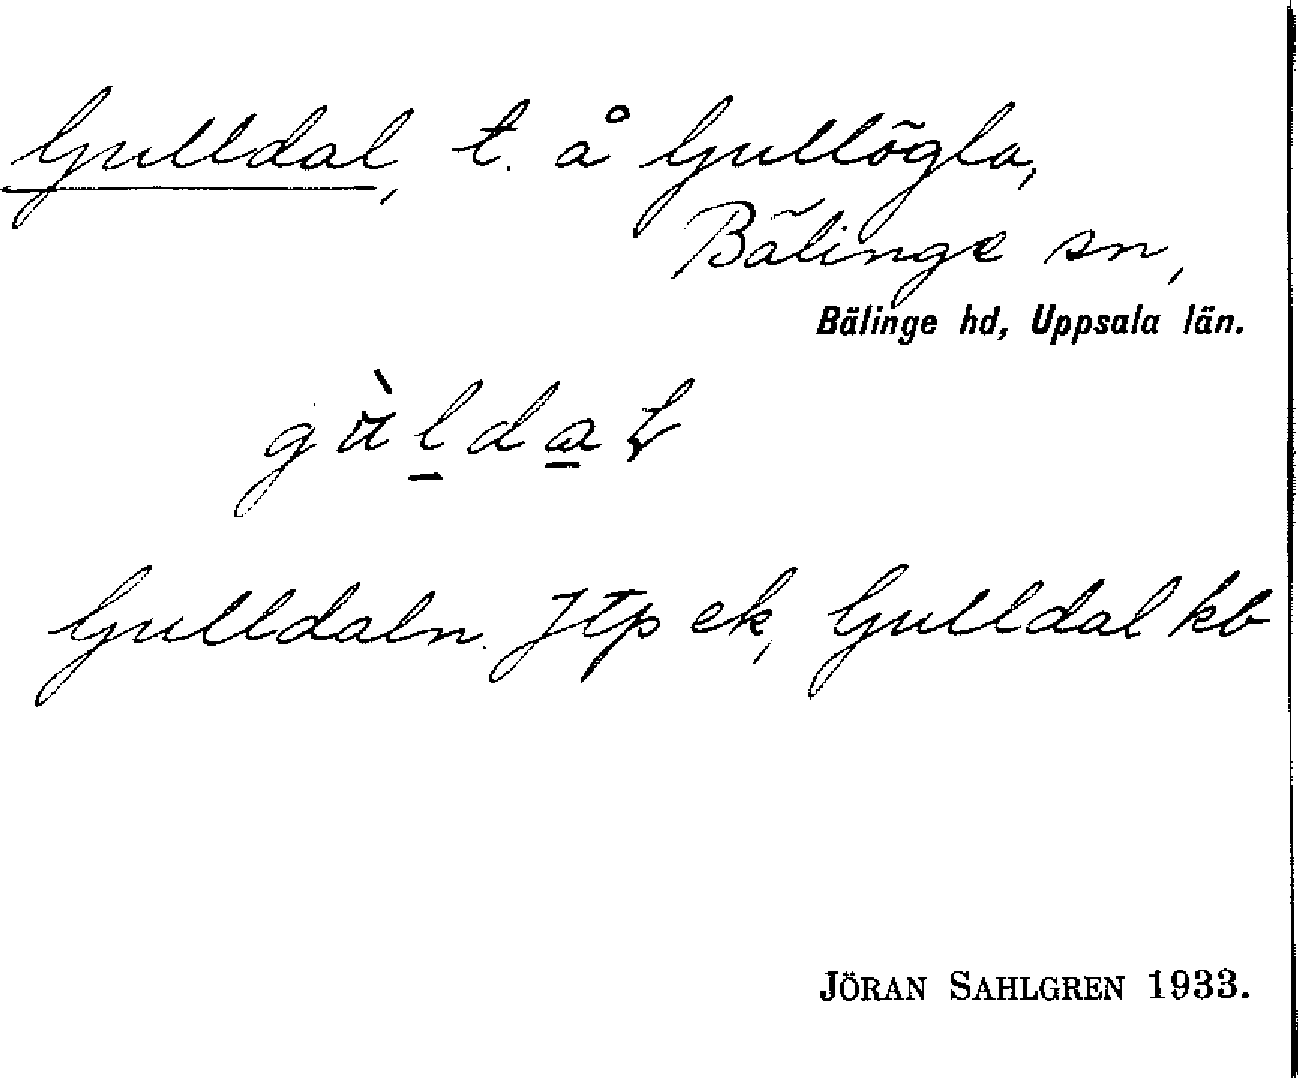 Gulldal, t. å Gullögla,
Bälinge sn,
Bälinge hd, Uppsala län.
Gulldaln. Jtp ek, Gulldal kb
JÖRAN SAHLGREN 1933.